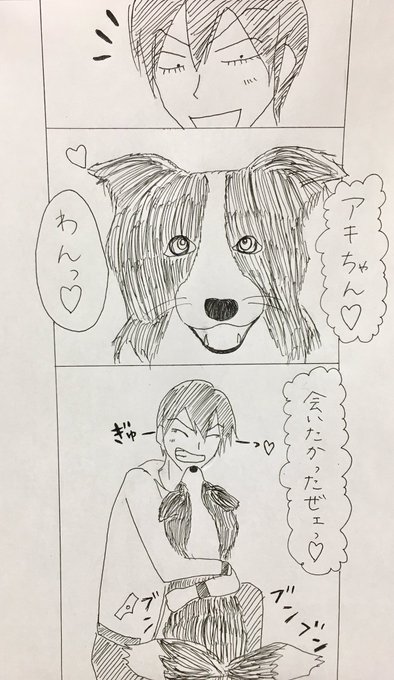 アキちゃん♡
わんっ♡
会いたかったぜェっ♡
ぎゅーっ♡
ブンブン
ブンブン